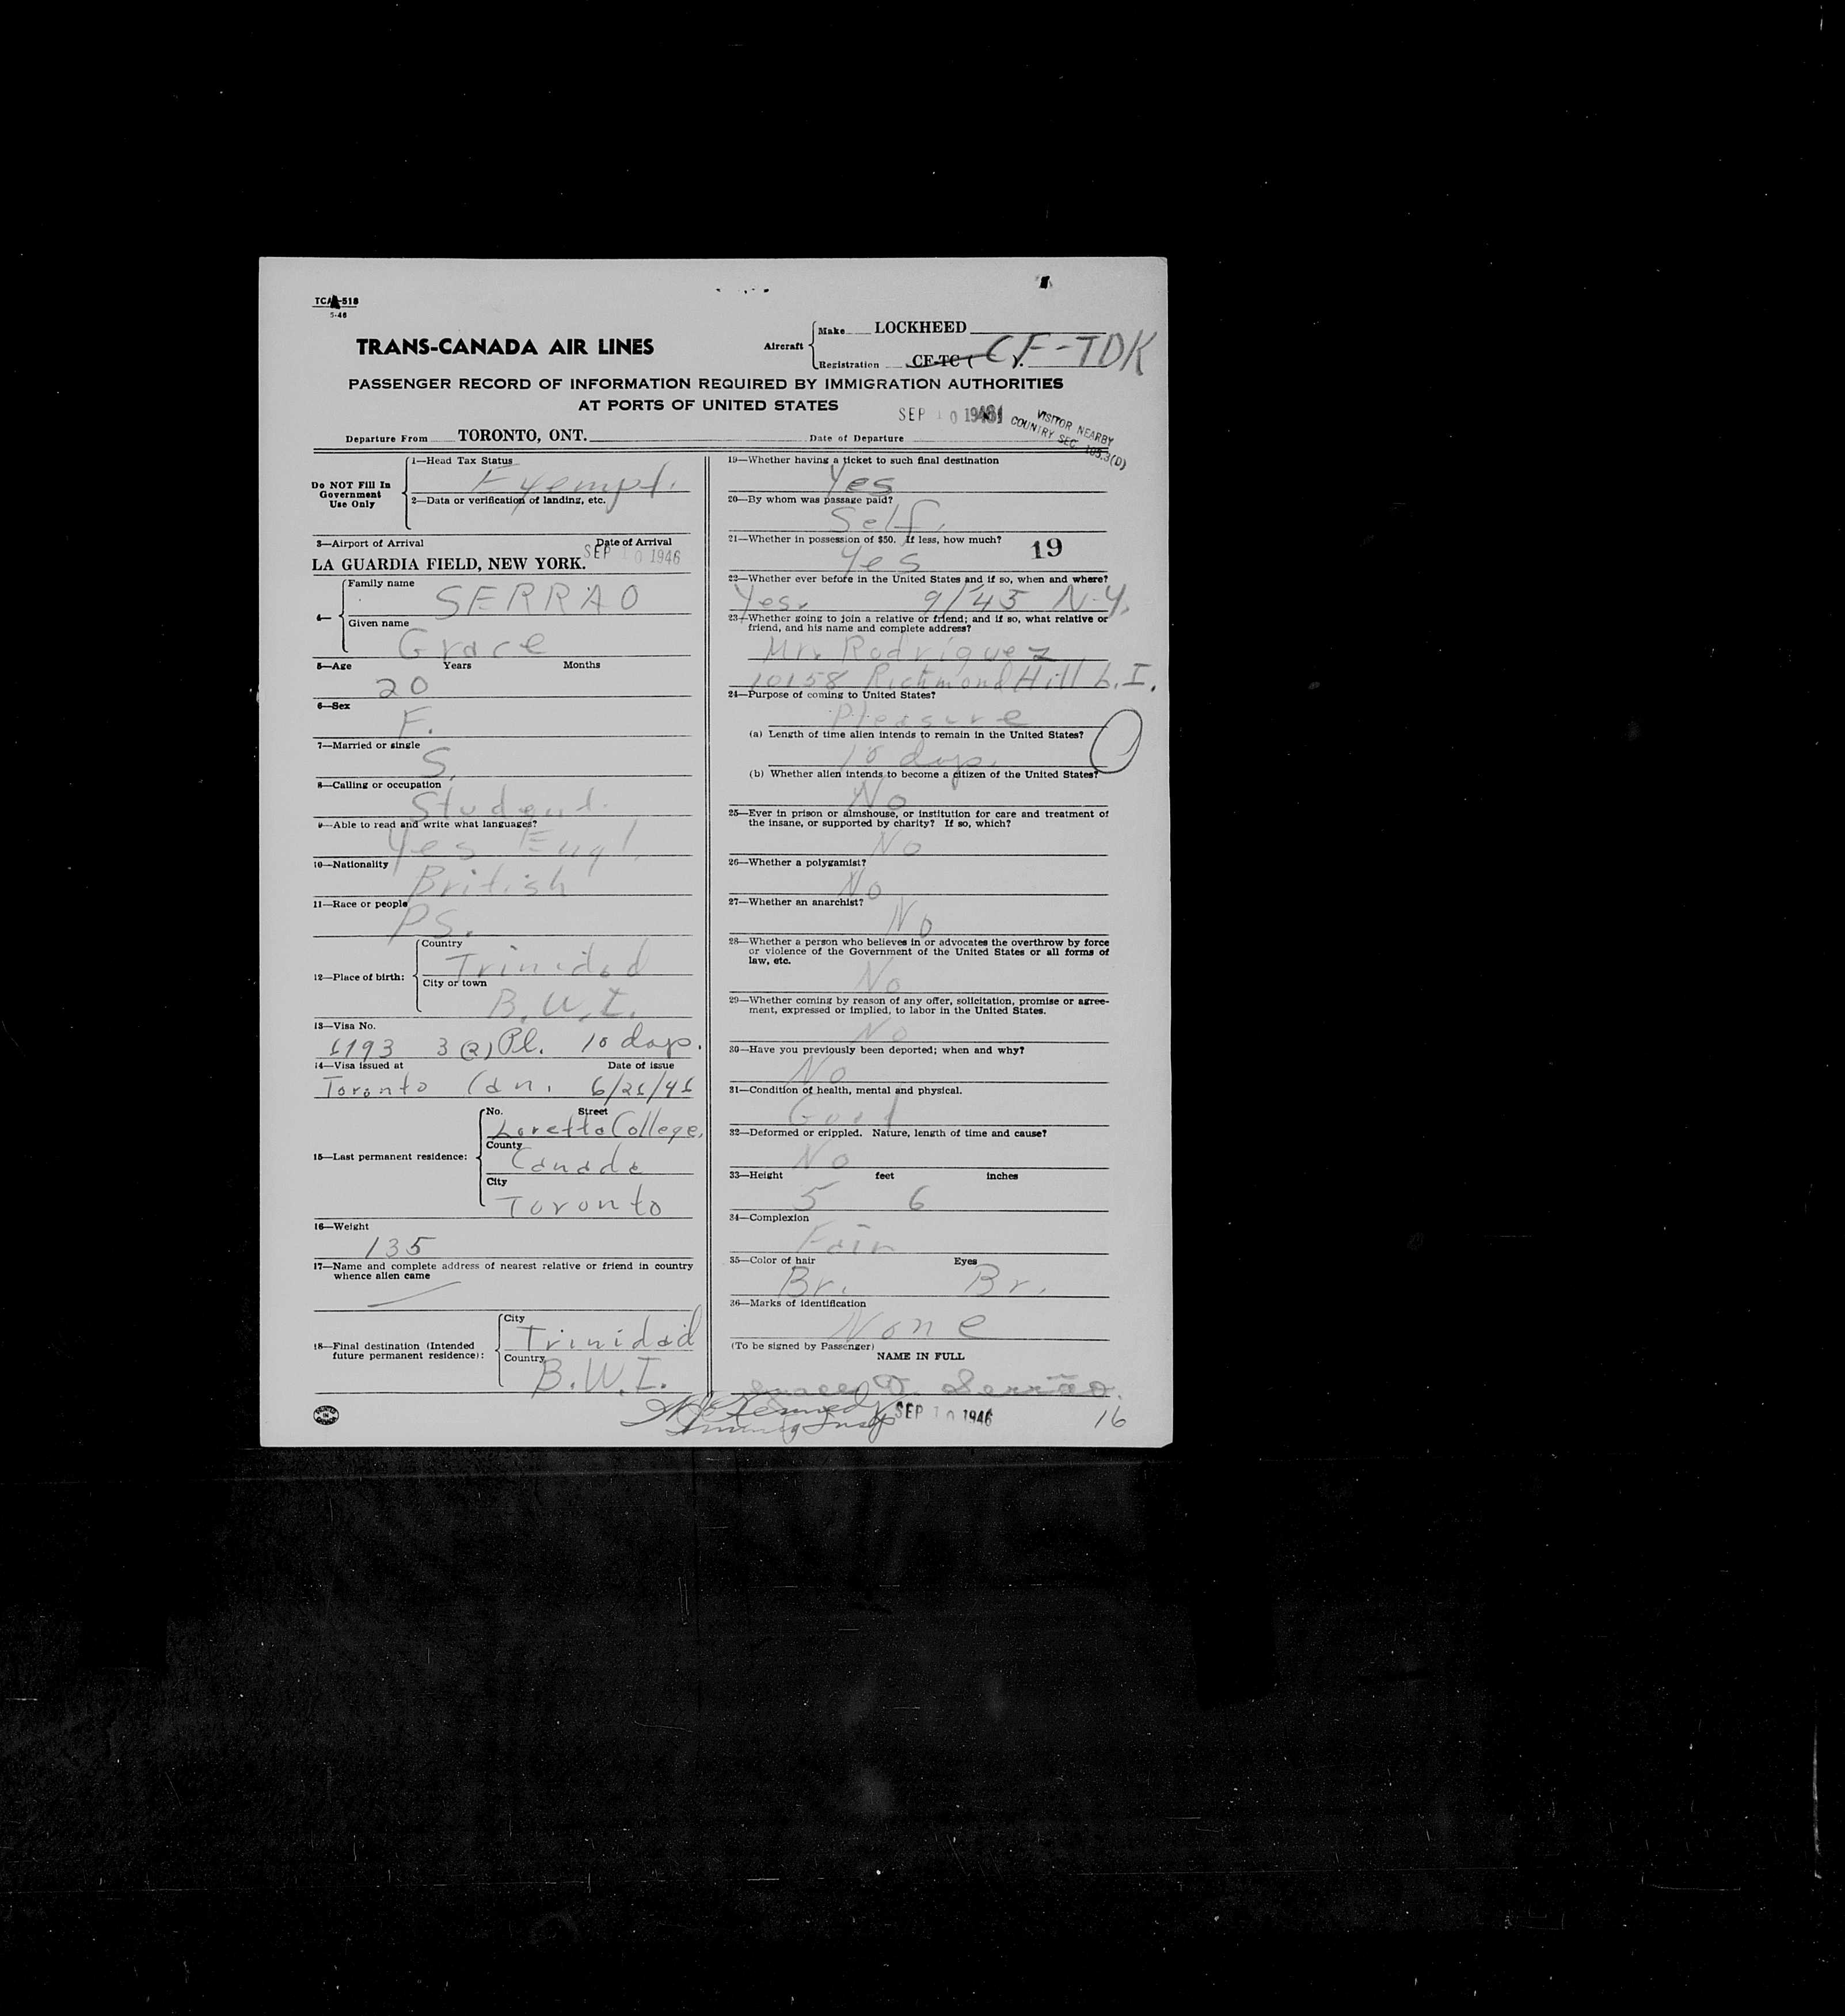 TCA-518
5-46
TRANS-CANADA AIR LINES
Aircraft
Make LOCKHEED
Registration CF-TC ( ). CF-TDK
PASSENGER RECORD OF INFORMATION REQUIRED BY IMMIGRATION AUTHORITIES
AT PORTS OF UNITED STATES
SEP 10 1946
VISITOR NEARBY
COUNTRY SEC. 165.3(D)
Departure From TORONTO, ONT. Date of Departure
Do NOT Fill In
Government
Use Only
1—Head Tax Status
Exempt.
2—Data or verification of landing, etc.
3—Airport of Arrival Date of Arrival
LA GUARDIA FIELD, NEW YORK. SEP 10 1946
4—
Family name
SERRAO
Given name
Grace
5—Age Years Months
20
6—Sex
F.
7—Married or single
S.
8—Calling or occupation
Student.
9—Able to read and write what languages?
Yes Engl.
10—Nationality
British
11—Race or people
P.S.
12—Place of birth:
Country
Trinidad
City or town
B.W.I.
13—Visa No.
6193 3(2) Pl. 10 days.
14—Visa issued at Date of issue
Toronto Can. 6/26/46
15—Last permanent residence:
No. Street
Loretto College,
County
Canada
City
Toronto
16—Weight
135
17—Name and complete address of nearest relative or friend in country
whence alien came
—
18—Final destination (Intended
future permanent residence):
City
Trinidad
Country
B.W.I.
19—Whether having a ticket to such final destination
Yes
20—By whom was passage paid?
Self.
21—Whether in possession of $50. If less, how much?
Yes
19
22—Whether ever before in the United States and if so, when and where?
Yes. 9/45 N.Y.
23—Whether going to join a relative or friend; and if so, what relative or
friend, and his name and complete address?
Mr. Rodriguez
10158 Richmond Hill L.I.
24—Purpose of coming to United States?
Pleasure
(a) Length of time alien intends to remain in the United States?
10 days.
(b) Whether alien intends to become a citizen of the United States?
No
25—Ever in prison or almshouse, or institution for care and treatment of
the insane, or supported by charity? If so, which?
No
26—Whether a polygamist?
No
27—Whether an anarchist?
No
28—Whether a person who believes in or advocates the overthrow by force
or violence of the Government of the United States or all forms of
law, etc.
No
29—Whether coming by reason of any offer, solicitation, promise or agree-
ment, expressed or implied, to labor in the United States.
No
30—Have you previously been deported; when and why?
No
31—Condition of health, mental and physical.
Good
32—Deformed or crippled. Nature, length of time and cause?
No
33—Height feet inches
5 6
34—Complexion
Fair
35—Color of hair Eyes
Br. Br.
36—Marks of identification
None
(To be signed by Passenger)
NAME IN FULL
Grace D. Serrão.
Kennedy
Immig Insp
SEP 10 1946
16